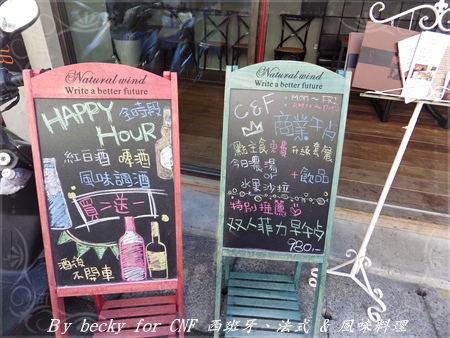 Natural wind
Write a better future
HAPPY 全時段
HOUR
紅白酒 啤酒
風味調酒
買一送一
酒後
不開車
Natural wind
Write a better future
C&F
商業午
點主食免費升級套餐
今日濃湯
+飲品
水果沙拉
特別推薦
双人菲力早午
980.-
By becky for CNF 西班牙、法式 & 風味料理